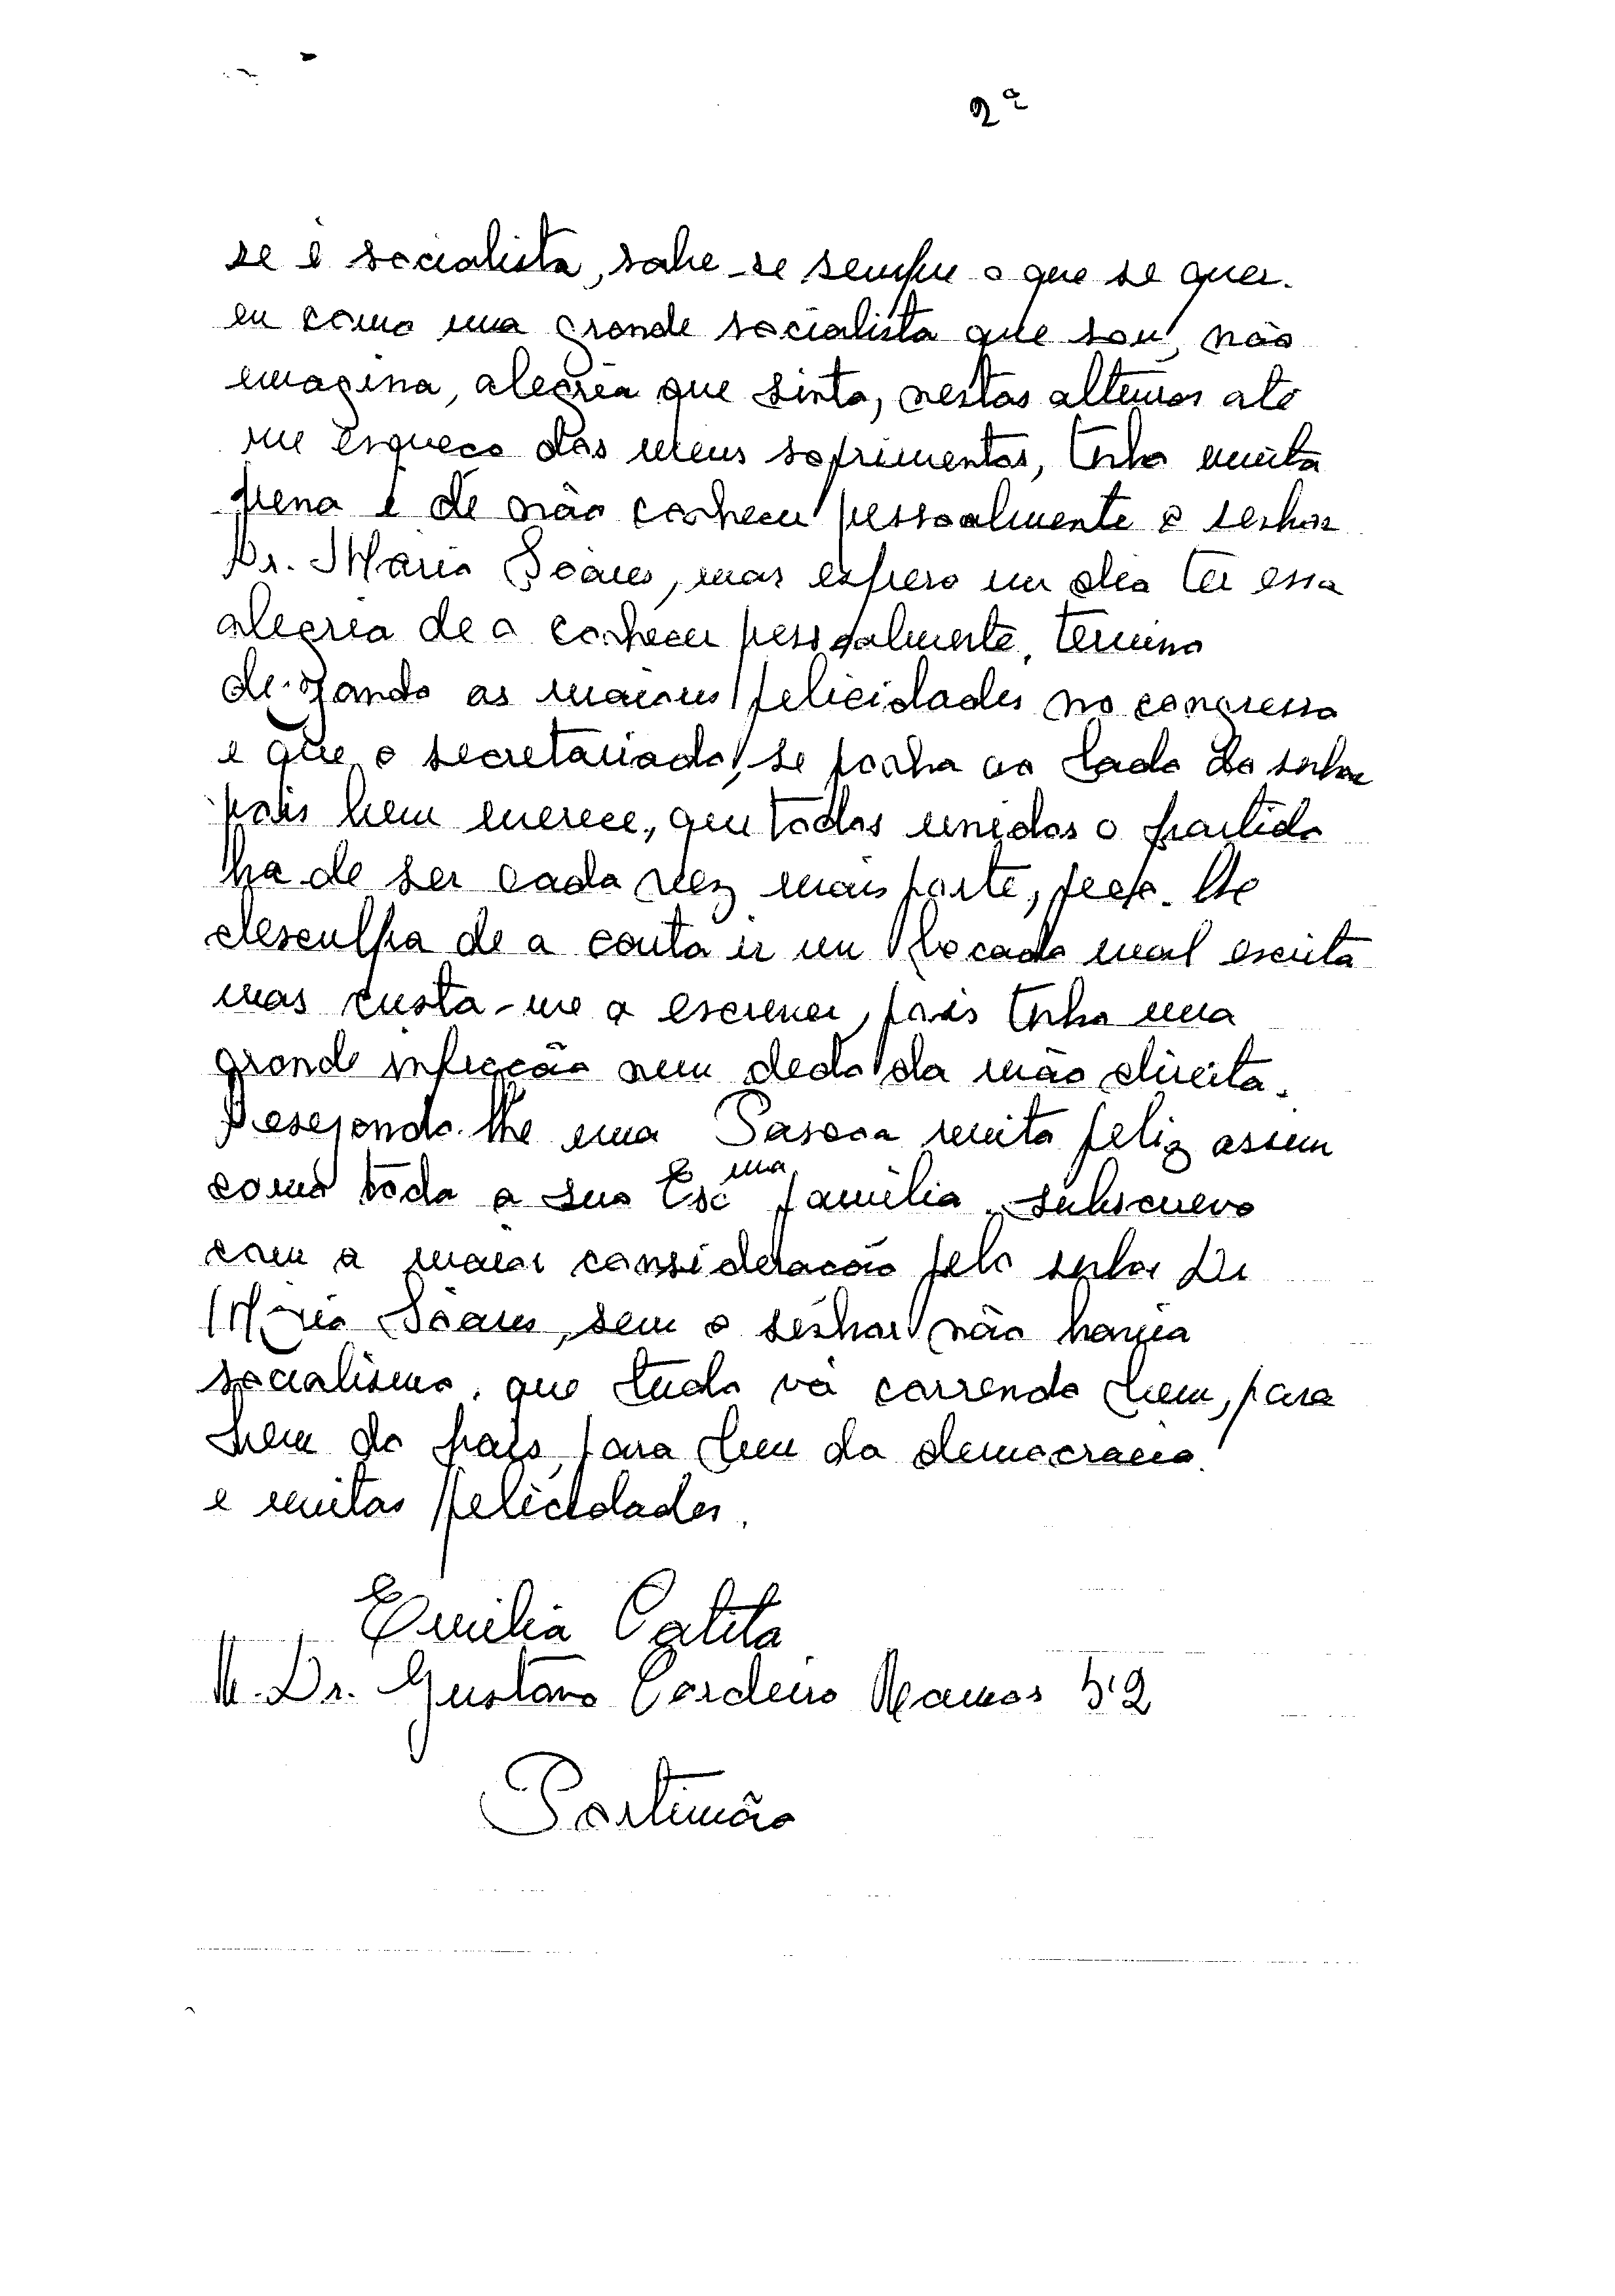 2ª
se é socialista, sabe-se sempre o que se quer.
eu como uma grande socialista que sou, não
emagina, alegria que sinto, nestas alturas até
me esqueço dos meus sofrimentos, tenho muita
pena é de não conhecer pessoalmente o senhor
Dr. Mário Soares, mas espero um dia ter essa
alegria de o conhecer pessoalmente, termino
de-zando as maiores felicidades no congresso
e que o secretariado, se ponha ao lado do senhor
pois bem merece, que todos unidos o partido
ha-de ser cada vez mais forte, peço-lhe
desculpa de a carta ir um bocado mal escrita
mas custa-me a escrever, pois tenho uma
grande infecção num dedo da mão direita.
Desejando-lhe uma Pascoa muito feliz assim
como toda a sua Esc ma familia. subscrevo
com a maior consideração pelo senhor Dr
Mário Soares, sem o senhor não havia
socialismo. que tudo vá correndo bem, para
bem do país, para bem da democracia
e muitas felicidades.
Emilia Catita
R. Dr. Gustavo Cordeiro Ramos 52
Portimão